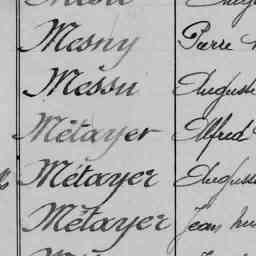 Mesny Pierre
Messu Auguste
Métayer Alfred
Métayer Auguste
Métayer Jean